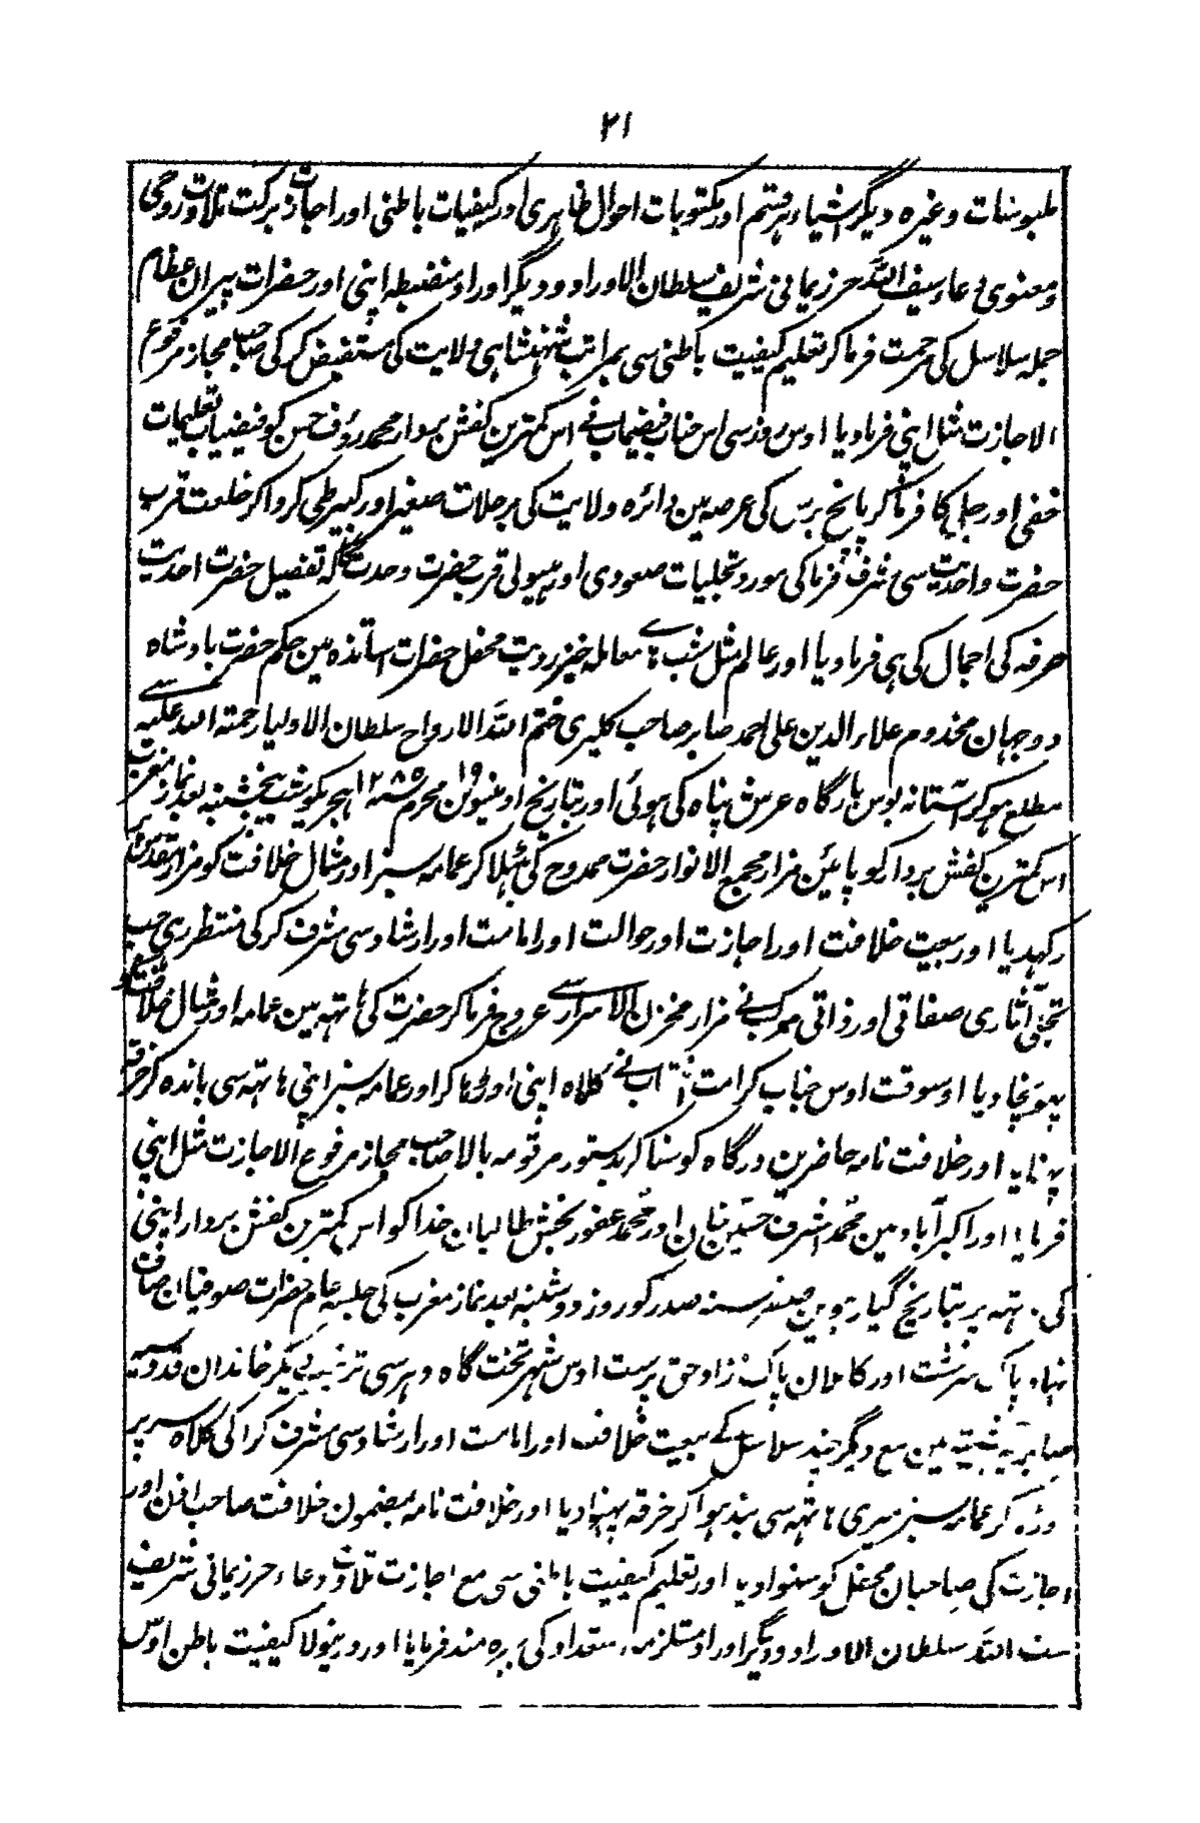 ۲۱
ملبوسات وغیرہ دیگر اشیاء ہر قسم اور مکتوبات احوال ظاہری اور کیفیات باطنی اور اجازت برکت تلاوت روحی
ومعنوی دعاء سیف اللہ حرز یمانی شریف سلطان الاوراد ودیگر اوراد منضبطہ اپنی اور حضرات پیران عظام
جملہ سلاسل کی مرحمت فرما کر تعلیم کیفیت باطنی سی بمراتب شہنشاہی ولایت کی مستفیض کر کی صاحب مجاز مرفوع
الاجازت مثل اپنی فرمادیا اوس روز سی اس جناب فیضیاب نے اس کمترین کفش بردار محمد رؤف حسن کو فیضیاب تعلیمات
خفی اور جلی کا فرما کر پانچ برس کی عرصہ مین دائرہ ولایت کی مرحلات صغیر اور کبیر طی کروا کر خلعت قرب
حضرت واحدیت سی مشرف فرما کی مورد تجلیات صعودی اور ہیولی قرب حضرت وحدت کا کہ تفصیل حضرت احدیت
صرفہ کی اجمال کی ہی فرمادیا اور عالم مثل شب معاملہ خیز رویت محفل حضرات اساتذہ مین حکم حضرت بادشاہ
دوجہان مخدوم علاء الدین علی احمد صابر صاحب کلیری ختم اللہ الارواح سلطان الاولیاء رحمتہ اللہ علیہ سے
مطلع ہو کر آستانہ بوس بارگاہ عرش پناہ کی ہوئی اور بتاریخ اونیسوین ۱۹ محرم سنہ ۱۲۸۵ ہجری شب پنجشنبہ بعد نماز مغرب
اس کمترین کفش بردار کو پائین مزار مجمع الانوار حضرت ممدوح کی بٹھلا کر عمامہ سبز اور مثال خلافت کو مزار مقدس پر
رکہدیا اور بیعت خلافت اور اجازت اور حوالت اور امامت اور ارشاد سی مشرف کر کی منتظر رہی جب
تجلی آثاری صفاتی اور ذاتی مزار مخزن الاسرار سے عروج فرما کر حضرت کی ہاتہہ مین عمامہ اور مثال خلافت
پہونچا دیا اوسوقت اوس جناب کرامت نے کلاہ اپنی اور عمامہ سبز اپنی ہاتہہ سی باندہ کر خرقہ
پہنایا اور خلافت نامہ حاضرین درگاہ کو سنا کر بدستور مرقومہ بالا صاحب مجاز مرفوع الاجازت مثل اپنی
فرمایا اور اکبرآباد مین محمد اشرف حسین خان اور محمد غفور بخش طالبان خدا کو اس کمترین کفش بردار اپنی
کی ہاتہہ پر بتاریخ گیارہوین سنہ صدر کو روز دوشنبہ بعد نماز مغرب کی جلسہ عام حضرات صوفیان صافی
نہاد پاک سرشت اور کاملان پاک نژاد حق پرست اوس شہر تخت گاہ خاندان قدوسیہ
صابریہ چشتیہ مین مع دیگر چند سلاسل کے بیعت خلافت اور امامت اور ارشاد سی مشرف کرا کی کلاہ سر پر
کر عمامہ سبز میری ہاتہہ سی بندہوا کر خرقہ پہنوا دیا اور خلافت نامہ بمضمون خلافت صاحب اذن اور
اجازت کی صاحبان محفل کو سنوا دیا اور تعلیم کیفیت باطنی سی مع اجازت تلاوت دعاء حرز یمانی شریف
سیف اللہ سلطان الاوراد ودیگر اوراد مستلزمہ استعداد کی بہرہ مند فرمایا اور کیفیت باطن اوس